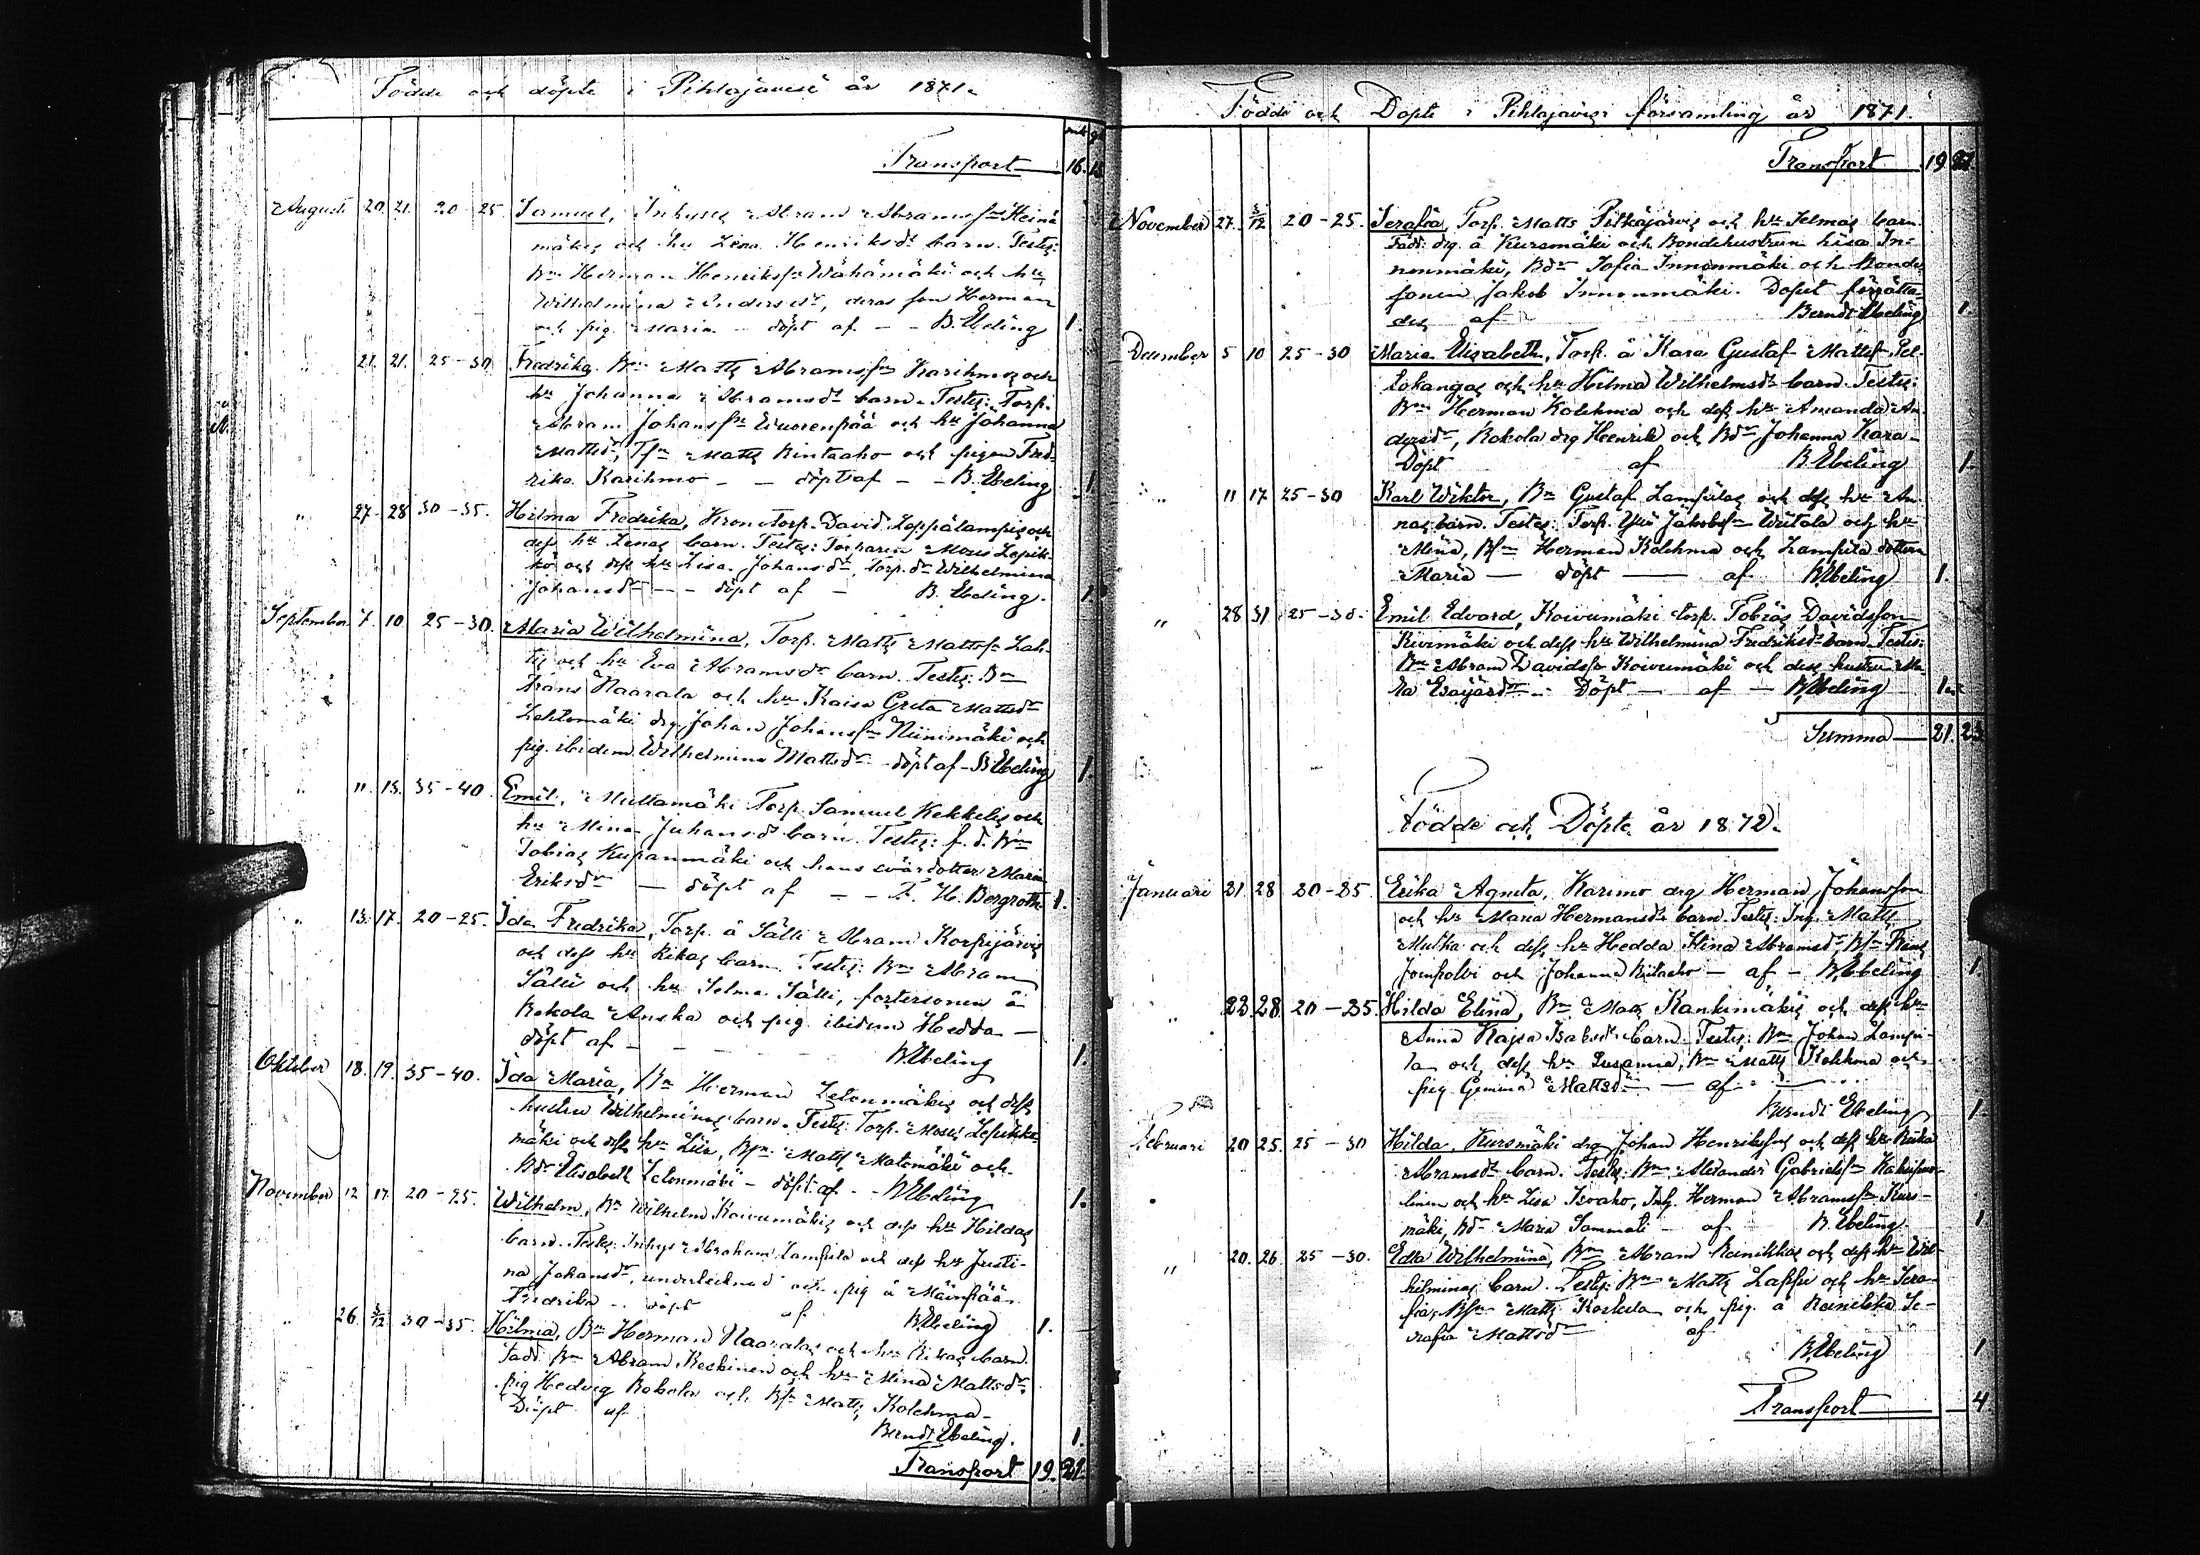 Födde och döpte i Pihlajavesi år 1871.
Transport 16. 18
Augusti 20. 21. 20-25 Samuel, Inhyses Abram Abramss:n Heinä
mäkis och hu Lena Henriksdr barn. Testes:
Bn Herman Henrikss:n Wähämäki och hu
Wilhelmina Andersdr, deras son Herman
och pig. Maria - döpt af - - B. Ebeling 1.
" 21. 21. 25-30 Fredrika. Bn Matts Abramss:n Karihmos och
hu Johanna Abramsdr barn. Testes: Torp.
Abram Johanss:n Wuorenpää och hu Johanna
Mattsdr, Matts Rintaaho och pigan Fred-
rika Karihmo - - döpt af - - B. Ebeling 1
" 27. 28 30-35. Hilma Fredrika, Krono torp. David Leppälampis och
dess hu Lenas barn. Testes: Torparen Moses Lepik-
kö och dess hu Lisa Johansdr, Torp.dr Wilhelmina
Johansdr - - - döpt af - B. Ebeling. 1.
September 7. 10. 25-30. Maria Wilhelmina, Torp. Matts Mattss:n Lah-
tis och hu Eva Abramsdr barn. Testes: Bn
Frans Naarala och hu Kaisa Greta Mattsdr
Lehtomäki drg. Johan Johanss:n Niinimäki och
pig. ibidem Wilhelmina Mattsdr - döpt af - B. Ebeling 1.
" 11. 13. 35-40. Emil, Multamäki Torp. Samuel Kekkelis och
hu Mina Juhansdr barn. Testes: f. d. Bn
Tobias Kupanmäki och hans svärdotter Maria
Eriksdr - döpt af - - F. H. Bergroth 1.
" 13. 17. 20-25. Ida Fredrika, Torp. å Sälli Abram Korpijärvis
och dess hu Rikas barn. Testes: Bn Abram
Sälli och hu Selma Sälli, å
Rokola Anska och pig. ibidem Hedda -
döpt af - - - B. Ebeling 1.
Oktober 18. 19. 35-40. Ida Maria, Bn Herman Letonmäkis och dess
hustru Wilhelminas barn. Testes: Torp. Moses Lepikko
mäki och dess hu Lisa, Bs:n Matts Matomäki och
Bdr Elisabeth Letonmäki - döpt af - B. Ebeling 1.
November 12 17. 20-25. Wilhelm, Bn Wilhelm Koivumäkis och dess hu Hildas
barn. Testes: Inhys Abraham Lampila och dess hu Justi-
na Johansdr, undertecknad och pig å Mäinpää
Fredrika - döpt af B. Ebeling 1.
" 26. 3/12 30-35. Hilma, Bn Herman Naaralas och hu Rikas barn.
Fadd. Bn Abram Keskinen och hu Mina Mattsdr
pig Hedvig Rokola och Bs:n Matts Kolehma -
Döpt af Berndt Ebeling. 1.
Transport 19. 21.
Födde och Döpte i Pihlajavesi församling år 1871.
Transport 19 21
November 27. 3/12 20-25. Serafia, Torp. Matts Pitkäjärvis och hu Selmas barn
Fadd: drg. å Kursmäki och Bondehustrun Lisa In-
nonmäki, Bdr Sofia Innonmäki och Bonde-
sonen Jakob Innonmäki. Dopet förrätta-
des af Berndt Ebeling 1.
December 5 10 25-30 Maria Elisabeth, Torp. å Kara Gustaf Mattss:n Pel-
tokangas och hu Hilma Wilhelmsdr barn. Testes:
Bn Herman Kolehma och dess hu Amanda An-
dersdr, Rokola drg Henrik och Bdr Johanna Kara -
Döpt af B. Ebeling 1.
" 11 17 25-30 Karl Wiktor, Bn Gustaf Lampilas och dess hu An-
nas barn. Testes: Torp. Yrjö Jakobss:n Wiitala och hu
Mina, Bs:n Herman Kolehma och Lampila dottern
Maria - döpt - af B. Ebeling 1.
" 28 31 25-30. Emil Edvard, Koivumäki torp. Tobias Davidsson
Kivimäki och dess hu Wilhelmina Fredriksdr barn. Testes:
Bn Abram Davidss:n Koivumäki och dess hustru
Esajasdr - Döpt - af - B. Ebeling 1.
Summa 21. 23
Födde och Döpte år 1872.
Januari 21 28 20-25 Erika Agneta, Karimo drg Herman Johansson
och hu Maria Hermansdr barn. Testes: Inh. Matts
Mutka och dess hu Hedda Stina Abramsdr, Bs:n Frans
Jompolvi och Johanna Ritaaho - af - B. Ebeling 1.
" 23 28. 20-25. Hilda Elina, Bn Matts Kankimäkis och dess hu
Anna Kajsa Isaksdr barn. Testes: Bn Johan Lampi-
la och dess hu Susanna, Bn Matts Kolehma och
pig Gemina Mattsdr - af -
Berndt Ebeling 1.
Februari 20 25. 25-30 Hilda, Kursmäki drg Johan Henrikssons och dess hu Rika
Abramsdr barn. Testes: Bn Alexander Gabrielss:n
linen och hu Lisa Isoaho, Inh. Herman Abramss:n Kurs-
mäki, Bdr Maria Sammati - af B. Ebeling. 1
" 20. 26 25-30. Edla Wilhelmina, Bn Abram Reinikkas och dess hu Wil-
helminas barn. Testes: Bn Matts Lappi och hu Sera-
fia, Bs:n Matts Koskela och pig. å Reinikka Se-
rafia Mattsdr af
B. Ebeling 1
Transport 4.